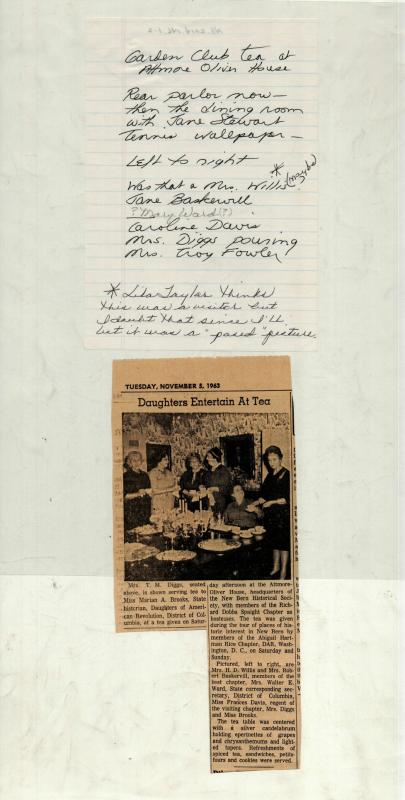 Garden Club tea at
Attmore Oliver House
Rear parlor now —
then the dining room
with Jane Stewart
tennis wallpaper —
Left to right
*
Was that a Mrs. Willis (maybe)
Jane Baskervill
? Mary Ward (?)
Caroline Davis
Mrs. Diggs pouring
Mrs. Troy Fowler
* Lila Taylor thinks
this was a visitor but
I doubt that since I'll
bet it was a "posed" picture.
TUESDAY, NOVEMBER 5, 1963
Daughters Entertain At Tea
Mrs. T. M. Diggs, seated
above, is shown serving tea to
Miss Marian A. Brooks, State
historian, Daughters of Ameri-
can Revolution, District of Co-
lumbia, at a tea given on Satur-
day afternoon at the Attmore-
Oliver House, headquarters of
the New Bern Historical Soci-
ety, with members of the Rich-
ard Dobbs Spaight Chapter as
hostesses. The tea was given
during the tour of places of his-
toric interest in New Bern by
members of the Abigail Hart-
man Rice Chapter, DAR, Wash-
ington, D. C., on Saturday and
Sunday.
Pictured, left to right, are
Mrs. H. D. Willis and Mrs. Rob-
ert Baskervill, members of the
host chapter, Mrs. Walter E.
Ward, State corresponding sec-
retary, District of Columbia,
Miss Frances Davis, regent of
the visiting chapter, Mrs. Diggs
and Miss Brooks.
The tea table was centered
with a silver candelabrum
holding epergnettes of grapes
and chrysanthemums and light-
ed tapers. Refreshments of
spiced tea, sandwiches, petits-
fours and cookies were served.